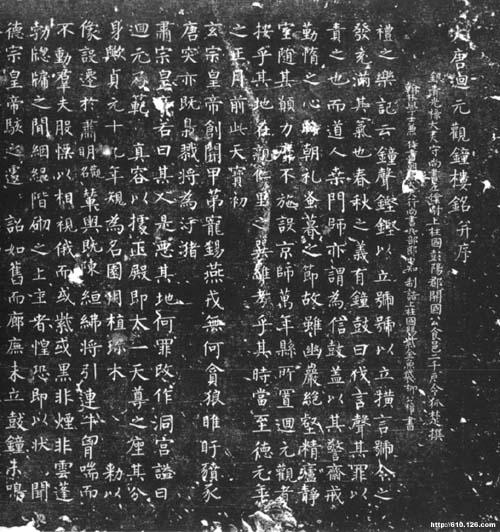 大唐迴元觀鐘樓銘并序
銀青光祿大夫守尚書左僕射上柱國彭陽郡開國公食邑二千戶令狐楚撰
翰林學士兼侍書朝議大夫行尚書兵部郎中知制誥上柱國賜紫金魚袋柳公權書
禮之樂記云鐘聲鏗鏗以立號號以立橫言號令之
發充滿其氣也春秋之義有鐘鼓曰伐言聲其罪以
責之也而道人桑門師亦謂為信鼓蓋以其警齋戒
勤惰之心時朝礼蚤暮之節故雖幽巖絕壑精廬靜
室隨其願力靡不施設京師萬年縣所置迴元觀者
按乎其地在親仁里之巽維考乎其時當至德元年
之正月前此天寶初
玄宗皇帝創開甲第寵錫燕戎無何貪狼睢盱豮豕
唐突亦既梟戮將為汙瀦
肅宗皇帝若曰其人是惡其地何罪改作洞宮謚曰
迴元乃範 真容以據正殿即太一天尊之座其分
身歟貞元十九年規為名園用植珍木 勑以
像設遷於肅明觀輦輿既陳絙紼將引連牛胷喘而
不動羣夫股慄以相視俄而或紫或黑非煙非雲蓬
勃牕牖之間絪縕階砌之上主者惶恐即以狀 聞
德宗皇帝駭之遽 詔如舊而廊廡未立鼓鐘未鳴
http://610.126.com